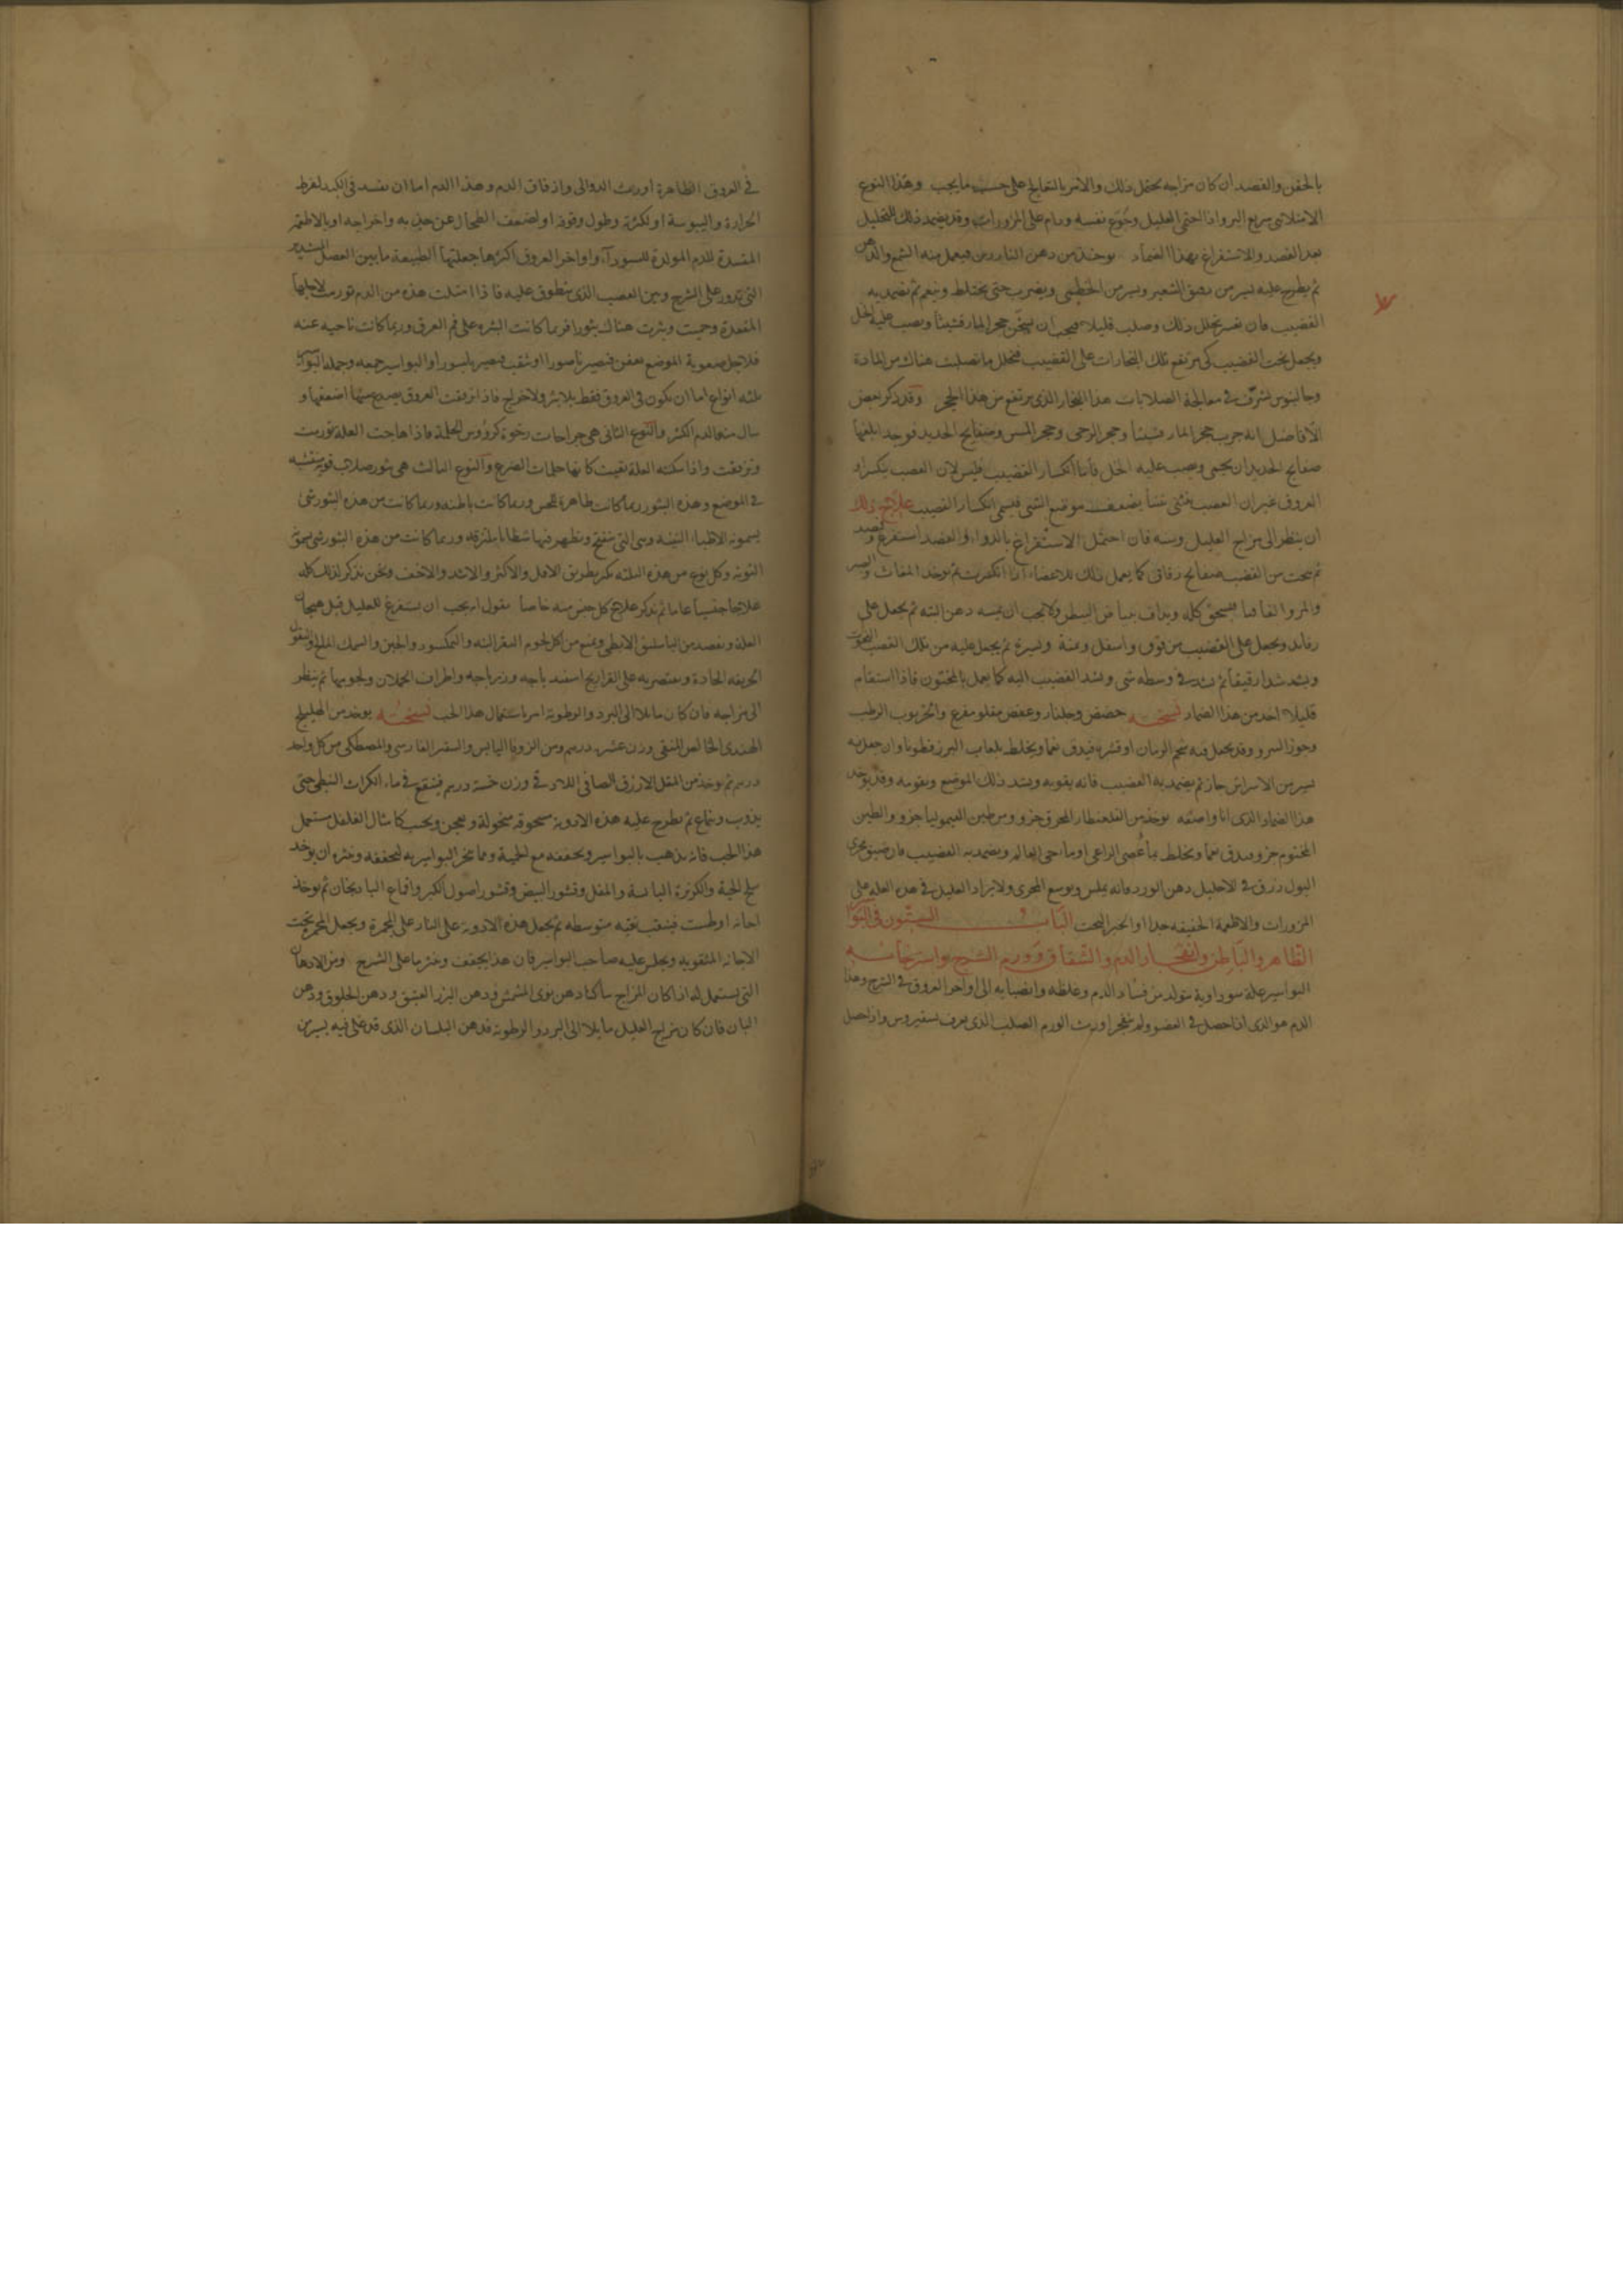 بالحقن والفصد ان كان مزاجه يحتمل ذلك والامر بالتعالج على حسب ما يجب وهذا النوع
الامتلائى سريع البرو اذا احتمى العليل وجوّع نفسه ودام على المزورات وقد يضمد ذلك للتحليل
بعد الفصد والاستفراغ بهذا الضماد يوخذ من دهن الناردين فيعمل منه الشمع والدهن
ثم يطرح عليه يسير من دقيق الشعير ويسير من الخطمى ويضرب حتى يختلط وينعم ثم يضمد به
القضيب فان عسر تحلل ذلك وصلب قليلا فيجب ان يسخّن حجر المارقشيثا ويصب عليه الخل
ويجعل تحت القضيب كى يرتفع تلك البخارات على القضيب فيحلل ما تصلب هناك من المادة
وجالينوس يشرّف فى معالجة الصلابات هذا البخار الذى يرتفع من هذا الحجر وقد ذكر بعض
الافاضل انه جرب حجر المارقشيثا وحجر الرحى وحجر المسن وصفايح الحديد فوجد ابلغها
صفايح الحديد ان يحمى ويصب عليه الخل فاما انكسار القضيب فليس لان العصب ينكسر او
العروق غير ان العصب ينثنى يضعف موقع الثنى فيسمى انكسار القضيب علاج ذلك
ان ينظر الى مزاج العليل وسنه فان احتمل الاستفراغ بالدواء والفصد استفرغ وفصد
ثم ينحت من القصب صفايح رقاق كما يعمل ذلك للاعضاء اذا انكسرت ثم يوخذ المغاث والصبر
والمر والقاقيا فيسحق كله ويداف ببياض البيض ولا يجب ان يمسه دهن البته ثم يجعل على
رفائد ويجعل على القضيب من فوق واسفل ويمنة ويسرة ثم يجعل عليه من تلك القصب المنحوت
ويشد شدا رقيقا ثم يشد فى وسطه شى ويشد القضيب اليه كما يعمل بالمختون فاذا استقام
قليلا اخذ من هذا الضماد نسخته حضض وجلنار وعفص مقلو مفرغ والخرنوب الرطب
وجوز السرو وقد يجعل فيه شحم الرمان او قشره فيدق نعما ويخلط بلعاب البزرقطونا وان جعل به
يسير من الاسراش جاز ثم يضمد به القضيب فانه يقويه ويشد ذلك الموضع ويقومه وقد يوخذ
هذا الضماد الذى انا واصفه يوخذ من القلقطار المحرق جزو ومن طين القيموليا جزو والطين
المختوم جزو ويدق نعما ويخلط بماء عصى الراعى او ماء حى العالم ويضمد به القضيب فان ضيق مجرى
البول زرق فى الاحليل دهن الورد فانه يملس ويوسع المجرى ولابد للعليل فى هذه العلة على
المزورات والاطعمة الخفيفه جدا او الخبز البحت الباب الستون فى البوا
الظاهر والباطن وانفجار الدم والشقاق وورم الشرج واسترخائه
البواسير علة سوداوية يتولد من فساد الدم وغلظه وانصبابه الى اواخر العروق فى الشرج وهذا
الدم هو الذى اذا حصل فى العضو ولم ينفجر اورث الورم الصلب الذى يعرف بسقيروس واذا حصل
فى العروق الظاهرة اورث الدوالى وهذا الدم اما ان يفسد فى الكبد لفرط
الحرارة واليبوسة او لكثرته وطول وقوفه او لضعف الطحال عن جذبه واخراجه او بالاطعمة
المفسدة للدم المولدة للسوداء واواخر العروق اكثرها جعلتها الطبيعة ما بين العضل المستدير
التى تدور على الشرج وبين العصب الذى ينطوق عليه فاذا امتلت هذه من الدم تورمت لاجلها
المقعدة وحميت وبثرت هناك بثورا فربما كانت البثره على فم العرق وربما كانت ناحيه عنه
فلاجل صعوبة الموضع يعفن فيصير ناصورا او يثقب فيصير باسورا والبواسير جمعه وجملة البواسير
ثلثه انواع اما ان يكون فى العروق فقط بلا بثر ولا خراج فاذا نزفت العروق ينصدع منها اضعفها و
سال منه الدم اكثر والنوع الثانى هى جراحات رخوة كرؤوس الحلمة فاذا هاجت العلة تورمت
ونزفت واذا سكنه العلة بقيت كانها حلمات الضرع والنوع الثالث هى بثور صلاب قوية متشبثه
فى الموضع وهذه البثور ربما كانت ظاهرة للحس وربما كانت باطنه وربما كانت من هذه البثور شى
يسمونه الاطباء التينه وهى التى تنفتح وتظهر فيها شظايا ملتزقه وربما كانت من هذه البثور شى يسمى
التوته وكل نوع من هذه الثلثه يكثر بطريق الاقل والاكثر والاشد والاخف ونحن نذكر لذلك كله
علاجا جنسيا عاما ثم نذكر علاج كل جنس منه خاصا فنقول انه يجب ان يستفرغ للعليل قبل هيجان
العلة ويفصد من الباسليق الابطى ويمنع من اكل لحوم البقر البته والنمكسود والجبن والسمك المالح والبقول
الحريفه الحادة ويقتصر به على الفراريج اسفيدباجه وزيرباجه واطراف الحملان ولحومها ثم ينظر
الى مزاجه فان كان مايلا الى البرد والرطوبة امر باستعمال هذا الحب نسخته يوخذ من الهليلج
الهندى الخالص المنقى وزن عشره درهم ومن الزوفا اليابس والسعتر الفارسى والمصطكى من كل واحد
درهم ثم يوخذ من المقل الازرق الصافى اللاذقى وزن خمسة درهم فينقع فى ماء الكراث النبطى حتى
يذوب وينماع ثم يطرح عليه هذه الادوية مسحوقه منخولة ويعجن ويحبب كامثال الفلفل يستعمل
هذا الحب فانه يذهب بالبواسير ويخففه مع الحمية ومما يبخر البواسير به لتجففه وخثره ان يوخذ
سلخ الحية والكزبرة اليابسة والمقل وقشور البيض وقشور اصول الكبر واقماع الباذنجان ثم يوخذ
اجانه او طست فيثقب ثقبه متوسطه ثم يجعل هذه الادوية على النار على المجمرة ويجعل المجمر تحت
الاجانة المثقوبه ويجلس عليه صاحب البواسير فان هذا يجفف وخثر ما على الشرج ومن الادهان
التى يستعمل له اذا كان المزاج ساكنا دهن نوى المشمش ودهن البزر العتيق ودهن الخلوق ودهن
البان فان كان مزاج العليل مايلا الى البرد والرطوبة فدهن البلسان الذى قد غلى فيه يسير من